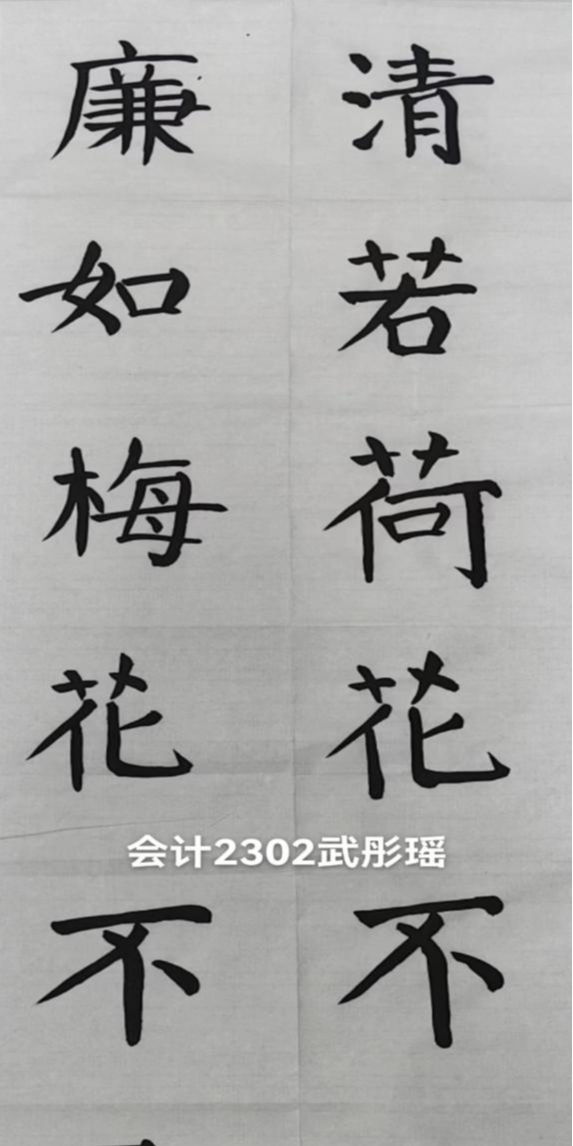 清若荷花不
廉如梅花不
会计2302武彤瑶